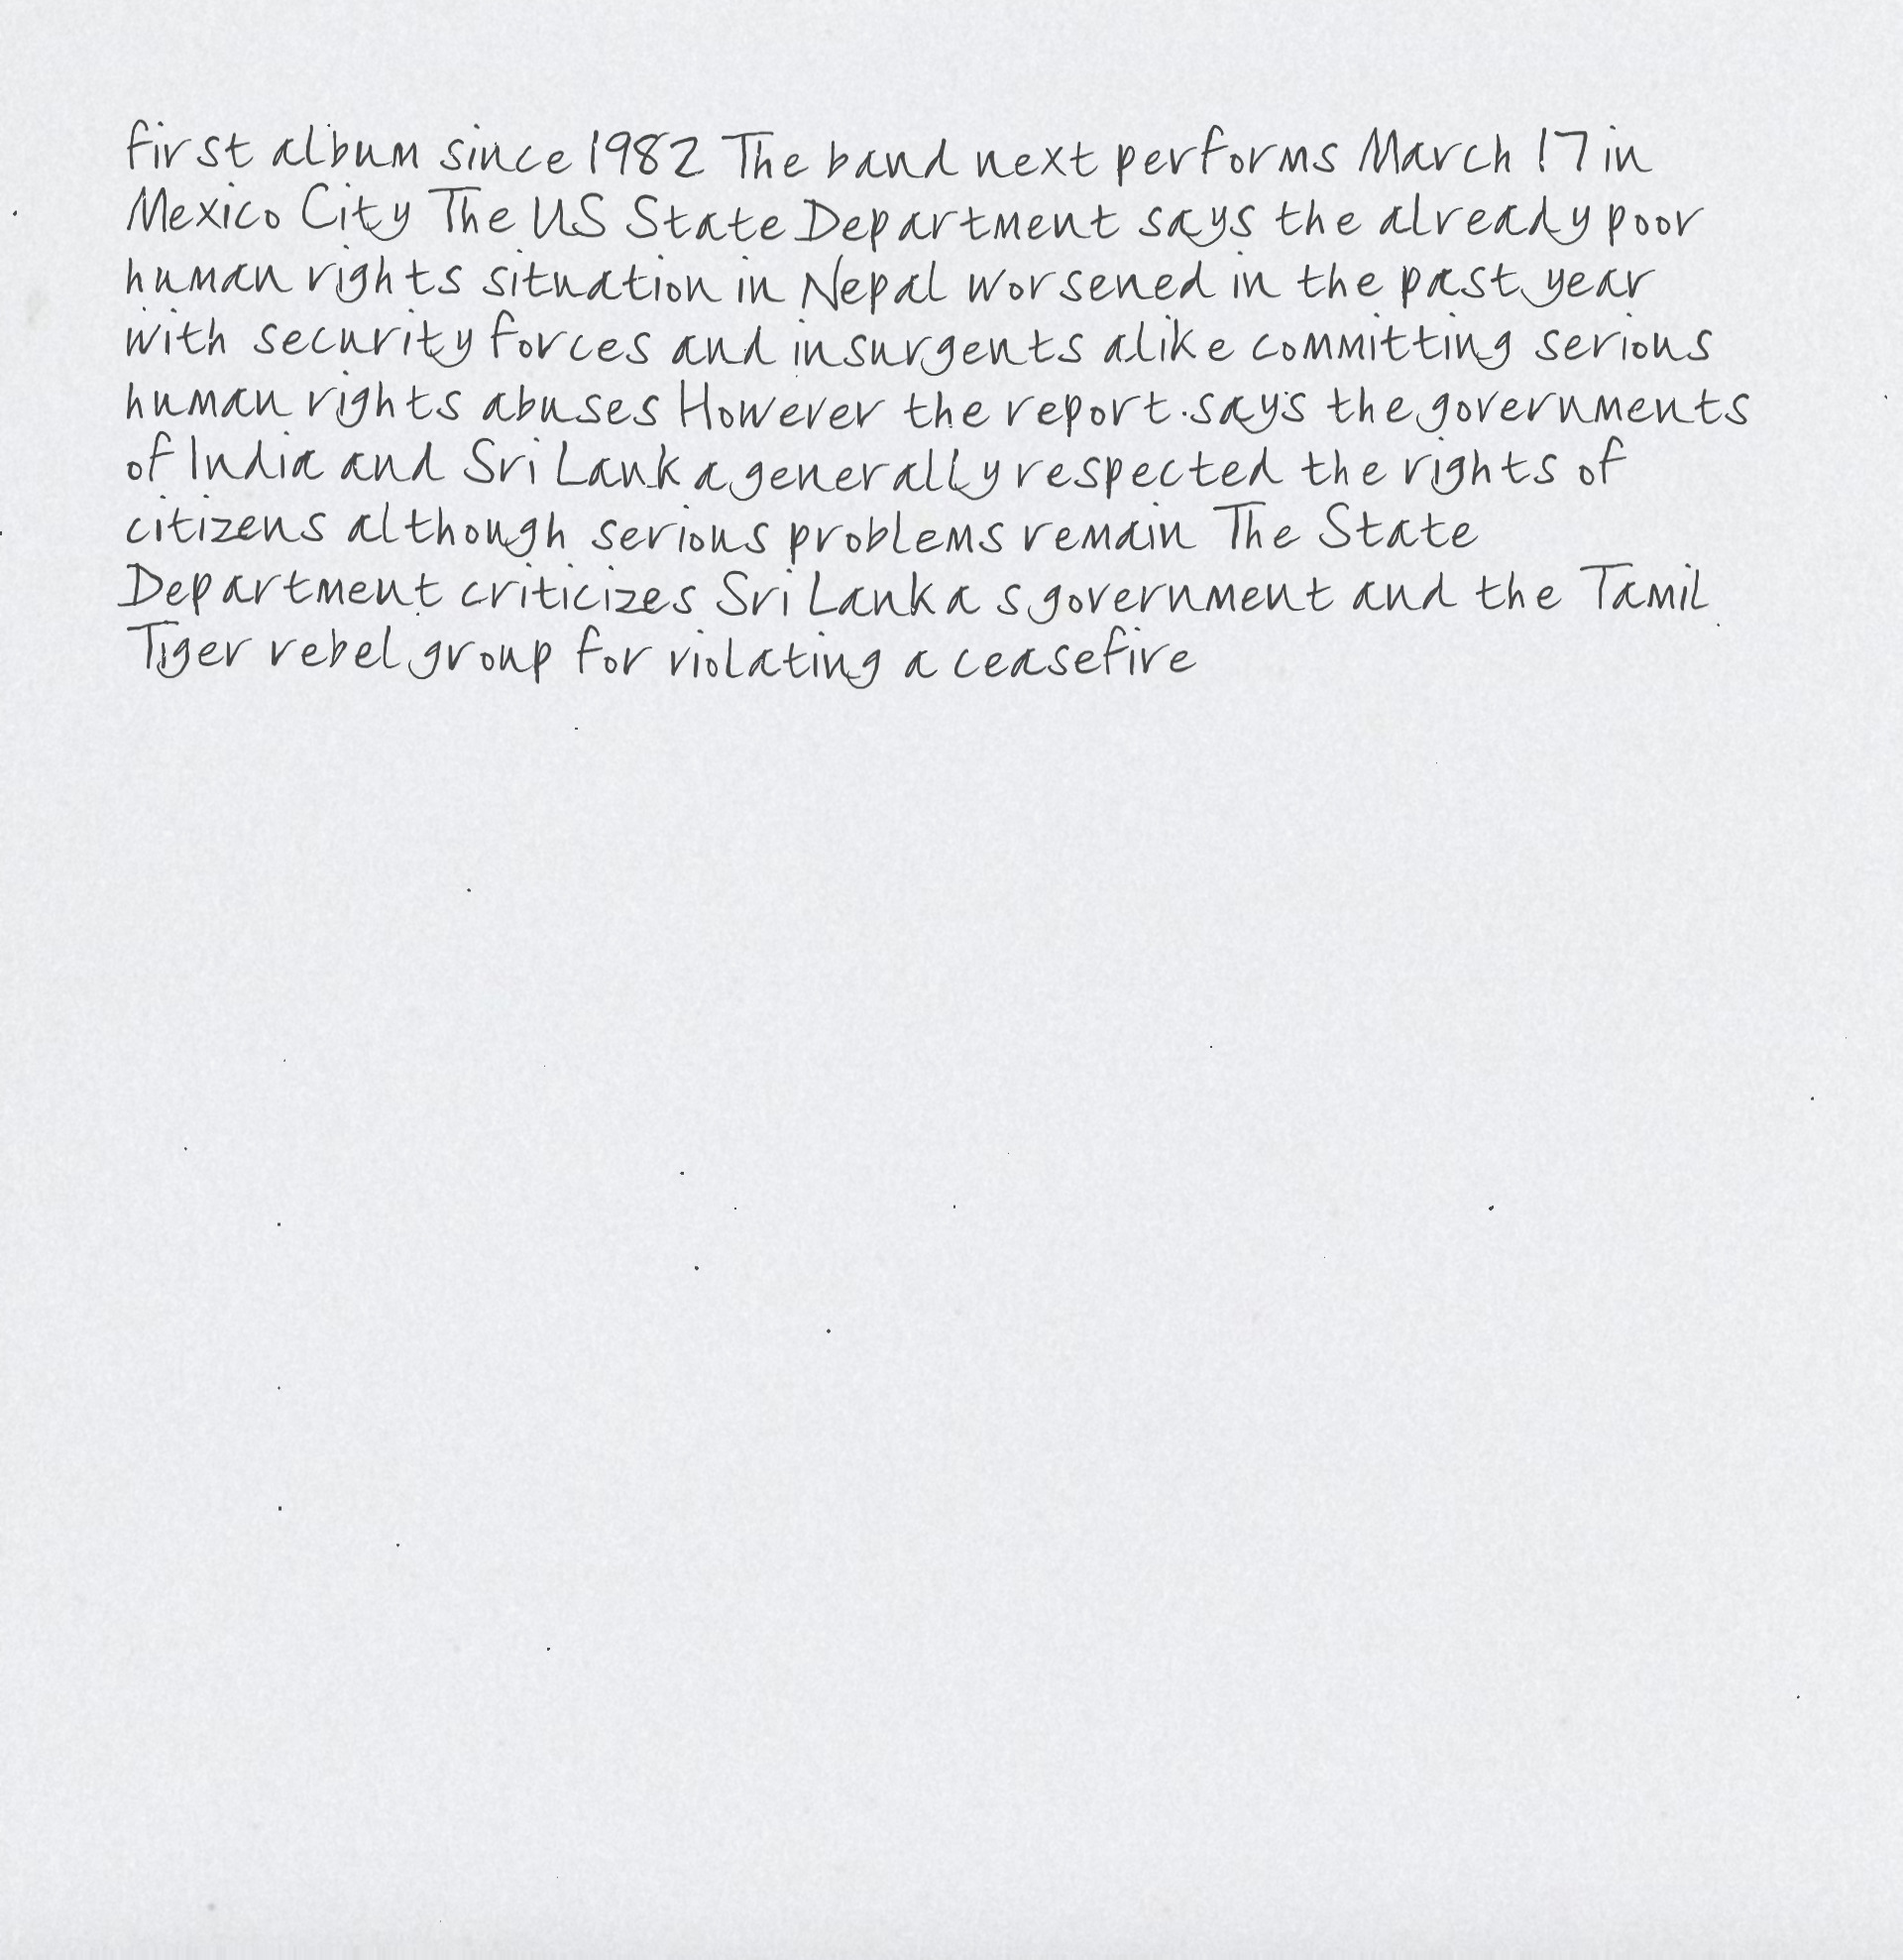 first album since 1982 The band next performs March 17 in
Mexico City The US State Department says the already poor
human rights situation in Nepal worsened in the past year
with security forces and insurgents alike committing serious
human rights abuses However the report says the governments
of India and Sri Lanka generally respected the rights of
citizens although serious problems remain The State
Department criticizes Sri Lanka s government and the Tamil
Tiger rebel group for violating a ceasefire